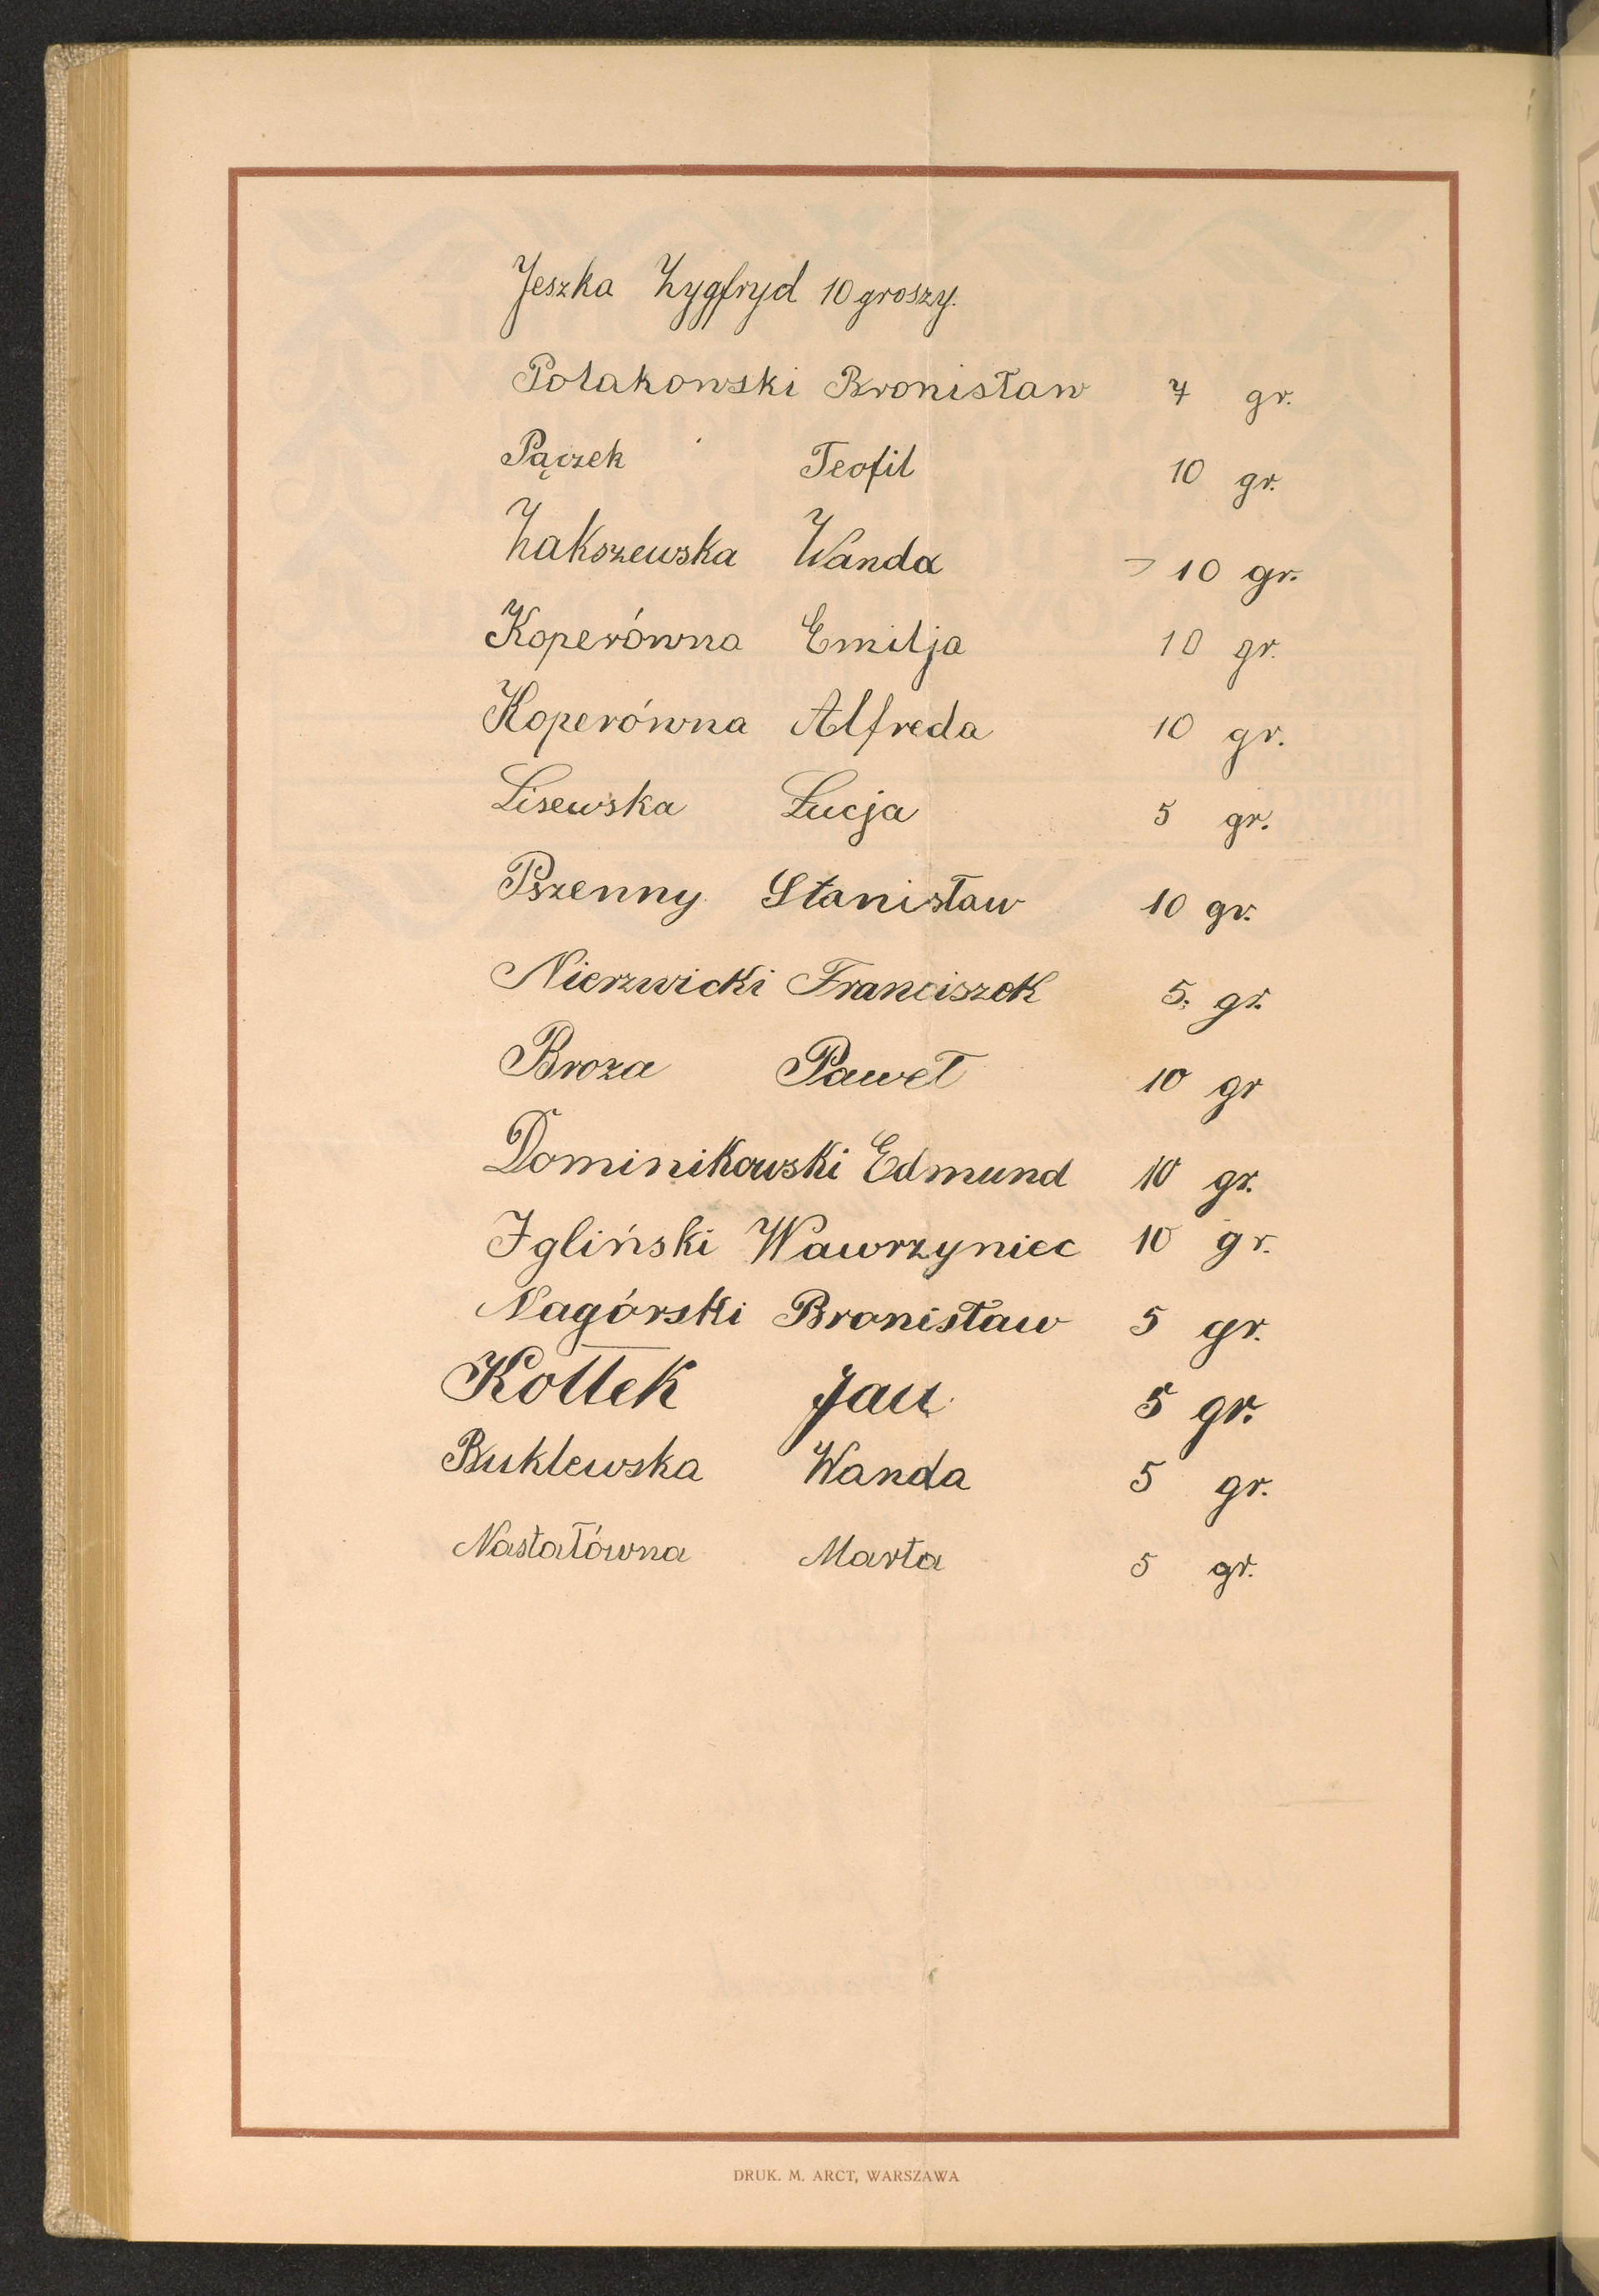 Jeszka Zygfryd 10 groszy.
Polakowski Bronisław 7 gr.
Pączek Teofil 10 gr.
Zakszewska Wanda 10 gr.
Koperówna Emilja 10 gr.
Koperówna Alfreda 10 gr.
Lisewska Łucja 5 gr.
Pszenny Stanisław 10 gr.
Nierzwicki Franciszek 5. gr.
Broza Paweł 10 gr
Dominikowski Edmund 10 gr.
Igliński Wawrzyniec 10 gr.
Nagórski Bronisław 5 gr.
Kottek Jan 5 gr.
Buklewska Wanda 5 gr.
Nastałówna Marta 5 gr.
DRUK. M. ARCT, WARSZAWA